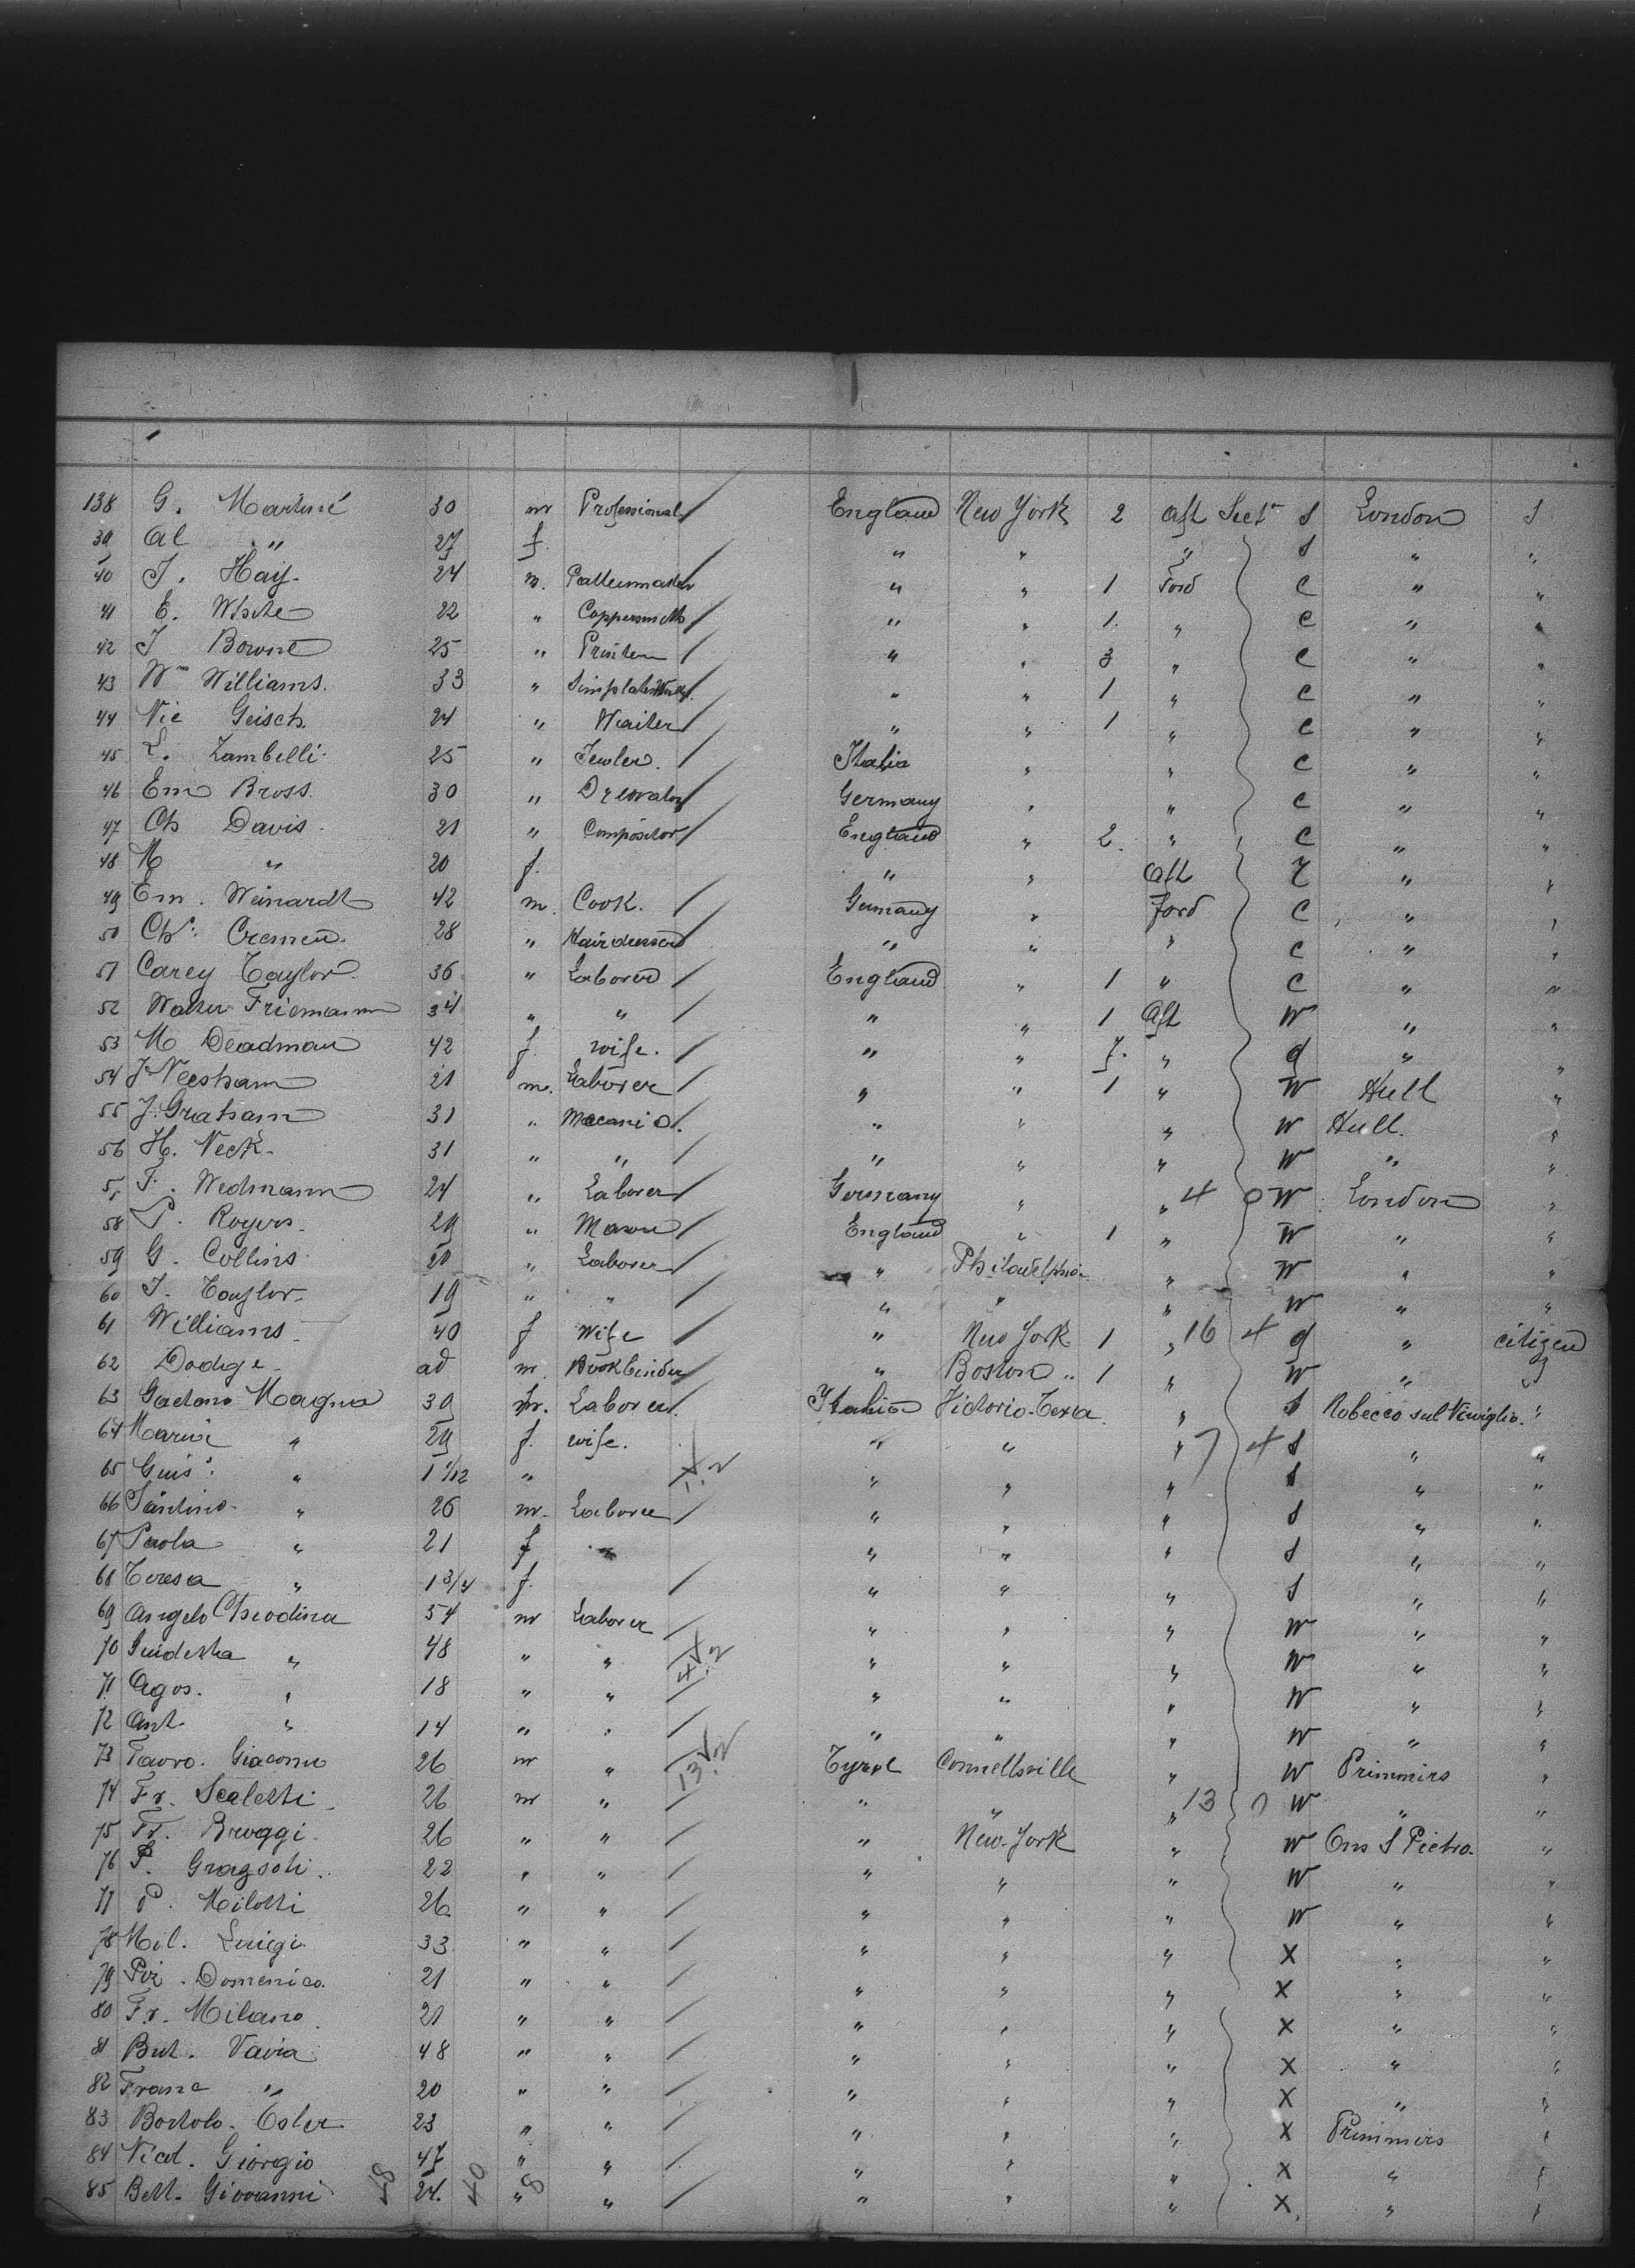 138 G. Martiné 30 m Professional / England New York 2 Aft Sect S London S
39 Al " 27 f. / " " " S " "
40 J. Hay. 24 m. Patternmaker / " " 1 Ford C " "
41 E. White 22 " Coppersmith / " " 1. " C " "
42 J Bowne 25 " Printer / " " 3 " C " "
43 Wm Williams. 33 " / " " 1 " C " "
44 Nic Geisch 24 " Waiter / " " 1 " C " "
45 L. Zambelli 25 " Jewler. / Italia " " C " "
46 Em Bross. 30 " / Germany " " C " "
47 Ch Davis. 21 " Compositor / England " 2. " C " "
48 M " 20 f. " " Aft " "
49 Em. Weinardt 42 m. Cook. / Germany " Ford C " "
50 Chs. Cremer. 28 " Hairdresser / " " " C " "
51 Carey Taylor. 36 " Laborer / England " 1 " C " "
52 Walter Friemann 34 " " / " " 1 Aft W " "
53 M Deadman 42 f. wife. / " " 7. " g " "
54 J Neesham 21 m. Laborer / " " 1 " W Hull "
55 J. Graham 31 " Macanic. / " " " W Hull. "
56 H. Neck. 31 " " / " " " W " "
57 F. Wedmann 24 " Laborer / Germany " " 4 0 W London "
58 P. Rogers. 29 " Mason / England " 1 " W " "
59 G. Collins 20 " Laborer / " Philadelphia " W " "
60 J. Taylor. 19 " " / " " " W " "
61 Williams. 40 f Wife / " New York 1 " 16 4 g " citizen
62 Dodge. ad m. Bookbinder / " Boston " 1 " W " "
63 Gaetano Magna 39 m. Laborer. / Italia Victoria-Texa. " S Robecco sul Niviglio. "
64 Maria " 29 f. wife. " " " 7 4 S " "
65 Guis: " 1 1/12 " " " " S " "
66 Santino. " 26 m. Laborer / " " " S " "
67 Paola " 21 f " " " S " "
68 Teresa " 1 3/4 f. / " " " S " "
69 Angelo Chiodina 54 m Laborer / " " " W " "
70 " 48 " " " " " W " "
71 Agos. " 18 " " / " " " W " "
72 Ant. " 14 " " / " " " W " "
73 Tavro. Giacomo 26 m " Tyrol Connellsville " W Primmirs "
74 Fr. Scaletti. 26 m " / " " " 13 0 W " "
75 Fr. Broggi. 26 " " / " New-York " W Ons S Pietro. "
76 P. Gragsoli. 22 " " / " " " W " "
77 P. Milotti 26 " " / " " " W " "
78 Mil. Luigi 33 " " / " " " X " "
79 Domenico. 21 " " / " " " X " "
80 Fr. Milano. 21 " " / " " " X " "
81 But. Vavia 48 " " / " " " X " "
82 Franc " 20 " " / " " " X " "
83 Bortolo. Esler 23 " " / " " " X Primmirs "
84 Nicol. Giorgio 47 " " / " " " X " "
85 Bett. Giovanni 24. " " / " " " X " "
40 8